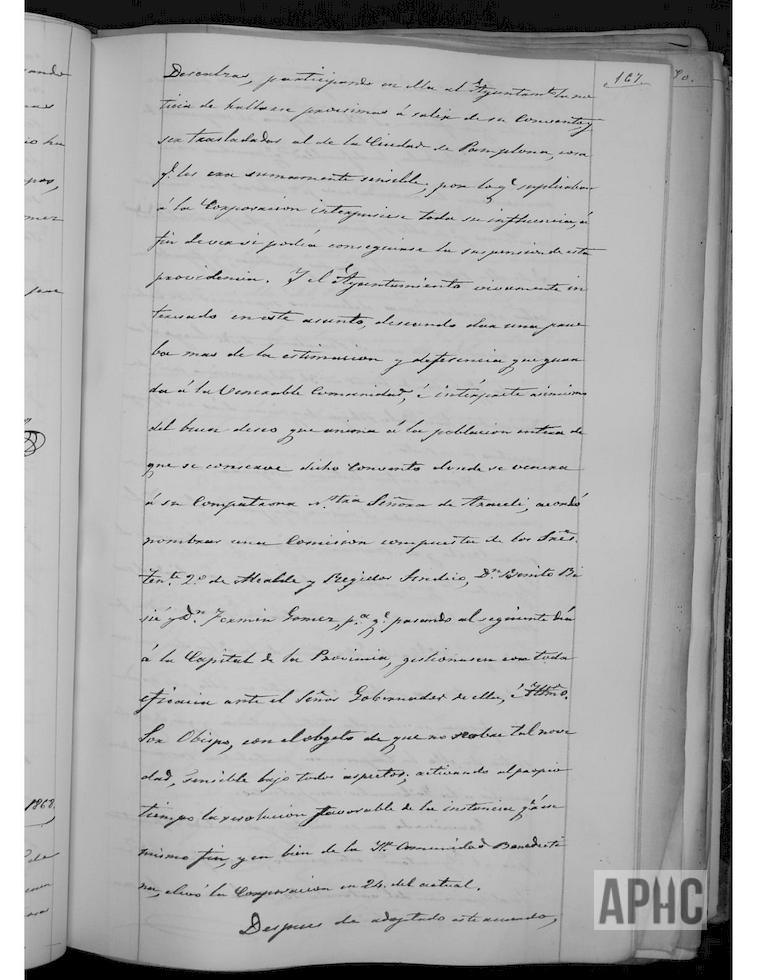 167.
Descalzas, participando en ella al Ayuntamto la no
ticia de hallarse procsimas á salir de su Convento y
ser trasladadas al de la Ciudad de Pamplona, cosa
q.e les era sumamente sensible, por lo q.e suplicaban
á la Corporacion interpusiese toda su influencia, á
fin de ver si podia conseguirse la suspension de esta
providencia. Y el Ayuntamiento vivamente in
teresado en este asunto, deseando dar una prue
ba mas de la estimacion y deferencia que guar
da á la Venerable Comunidad, é intérprete asimismo
del buen deseo que anima á la poblacion entera de
que se conserve dicho Convento donde se venera
á su Compatrona n.tra Señora de Araceli, acordó
nombrar una Comision compuesta de los Sres.
Tente. 2.º de Alcalde y Regidor Sindico, D.n Benito Bi
sié y D.n Fermin Gomez, p.a q.e pasando al siguiente dia
á la Capital de la Provincia, gestionasen con toda
eficacia ante el Señor Gobernador de ella, é Illmo.
Sor Obispo, con el obgeto de que no se obre tal nove
dad, sensible bajo todos aspectos; activando al propio
tiempo la resolucion favorable de la instancia q.e á ese
mismo fin, y en bien de la Comunidad Benedicti
na, elevó la Corporacion en 24. del actual.
Despues de adoptado este acuerdo,
1868.
APHC